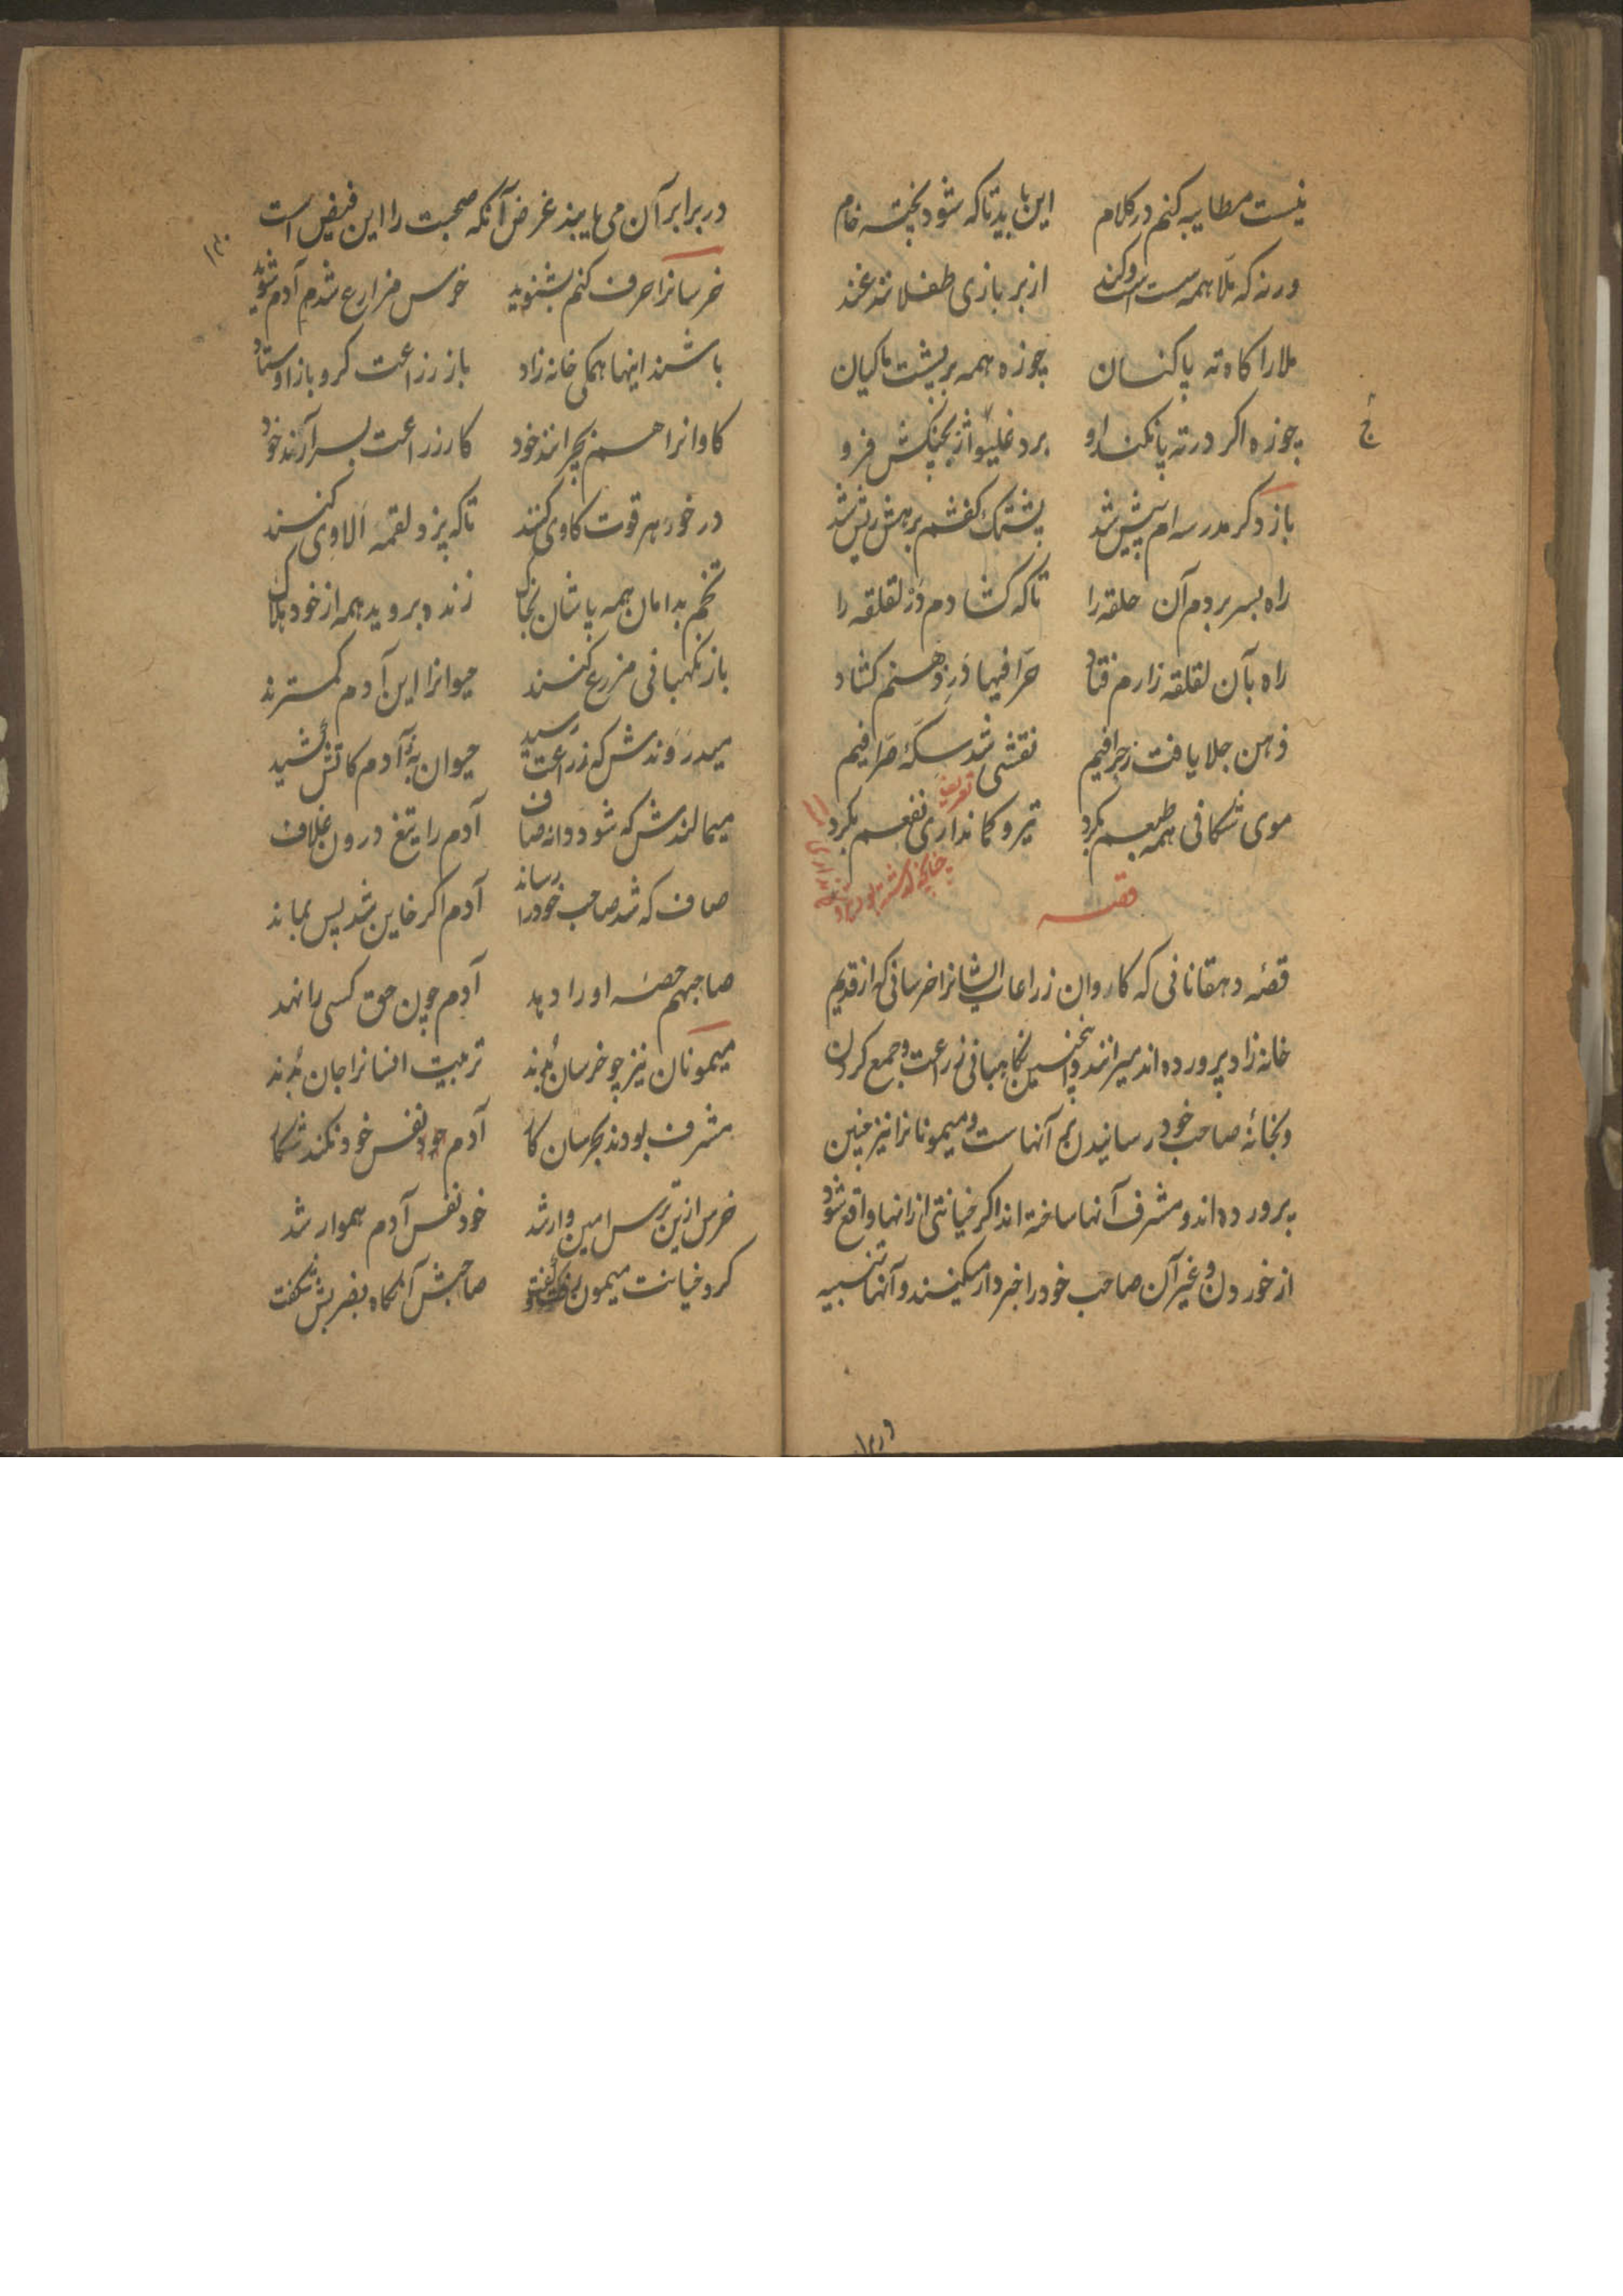 نیست مطایبه کنم در کلام این باید تا که شود پخته خام
ورنه که ملا همه از بر بازی طفلانند
ملا را کاه ته پا کنسان چوزه همه بر پشت ماکیان
چوزه اکر در ته پا نکند او برد غلیواژ بچنکش فرو
باز دکر مدرسه ام پیش شد پشتک کفشم
راه بسر بردم آن حلقه را تا که کشادم در لقلقه را
راه بآن لقلقه زارم فتاد حرافیها در ذهنم کشاد
ذهن جلا یافت ز حرافیم نقشی شد سکه صرافیم
موی شکافی همه طبعم بکرد تیر و کمانداری نفعم بکرد
قصه
قصه دهقانانی که کاروان زراعات ایشانرا خرسانی که از قدیم
خانه زاد پرورده اند میرانند و نکاهبانی زراعت و جمع کردن
و بخانه صاحب خود رسانیدن هم آنهاست و میمونانرا نیز چنین
پرورده اند و مشرف آنها ساخته اند اکر خیانتی از آنها واقع شود
از خوردن و غیر آن صاحب خود را خبردار میکنند و آنها تنبیه
در برابر آن می یابند غرض آنکه صحبت را این فیض است
خرسانرا حرف کنم بشنوید خرس مزارع شد آدم شوید
باشند اینها همکی خانه زاد باز زراعت کر و باز اوستاد
کاوانرا هم بچرانند خود کار زراعت بسر آرند خود
در خور هر قوت کاوی کنند تا که پزد لقمه الاوی کنند
تخم بدامان همه پاشان بخاک زنده بروید همه از خود هلاک
باز نکهبانی مزرع کنند حیوانرا این آدم کمترند
میدروندش که زراعت رسید حیوان به ز آدم
میمالندش که شود دانه صاف آدم را تیغ درون غلاف
صاف که شد صاحب خود را رساند آدم اکر خاین شد پس بماند
صاحبهم حصه او را دهد آدم چون حق کسی را نهد
میمونان نیز چو خرسان تربیت انسانرا جان
مشرف بودند بخرسان کار آدم خود نفس خود نکند شکار
خرس ازین ترس امین وار شد خود نفس آدم هموار شد
کرد خیانت میمون صاحبش آنکاه بضربش